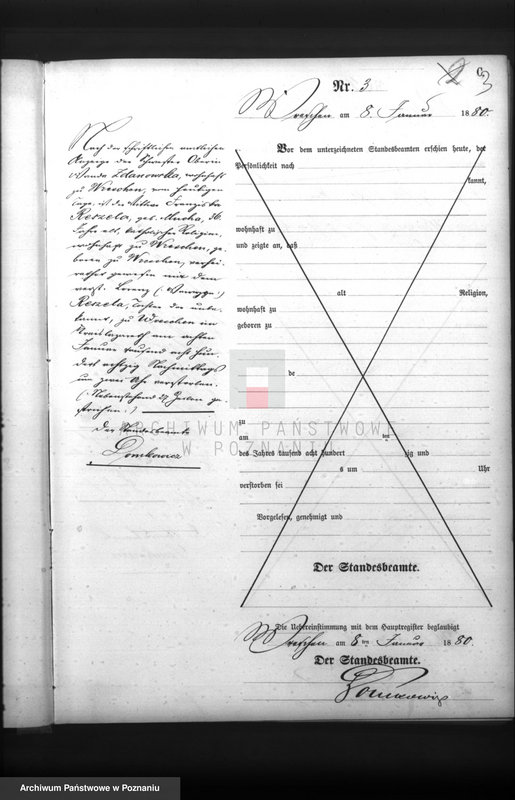 C.
3
Nr. 3
Wreschen am 8. Januar 1880.
Nach der schriftlichen amtlichen
Anzeige der Schwester Oberin
Wanda Zdanowska, wohnhaft
zu Wreschen, vom heutigen
Tage, ist die Witwe Franziska
Reszela, geb. Mucha, 36
Jahre alt, katholischer Religion,
wohnhaft zu Wreschen, ge-
boren zu Wreschen, verhei-
rathet gewesen mit dem
verst. Lorenz (Wawrzyn)
Reszela, Tochter der unbe-
kannt, zu Wreschen im
Kreislazareth am achten
Januar tausend acht hun-
dert achtzig Nachmittags
um zwei Uhr verstorben.
(Nebenstehend 27 Zeilen ge-
strichen.)
Der Standesbeamte
Vor dem unterzeichneten Standesbeamten erschien heute, der
Persönlichkeit nach
kannt,
wohnhaft zu
und zeigte an, daß
alt Religion,
wohnhaft zu
geboren zu
de
zu
am ten
des Jahres tausend acht hundert zig und
s um Uhr
verstorben sei
Vorgelesen, genehmigt und
Der Standesbeamte.
Die Uebereinstimmung mit dem Hauptregister beglaubigt
Wreschen am 8 ten Januar 1880.
Der Standesbeamte.
ARCHIWUM PAŃSTWOWE
W POZNANIU
Archiwum Państwowe w Poznaniu